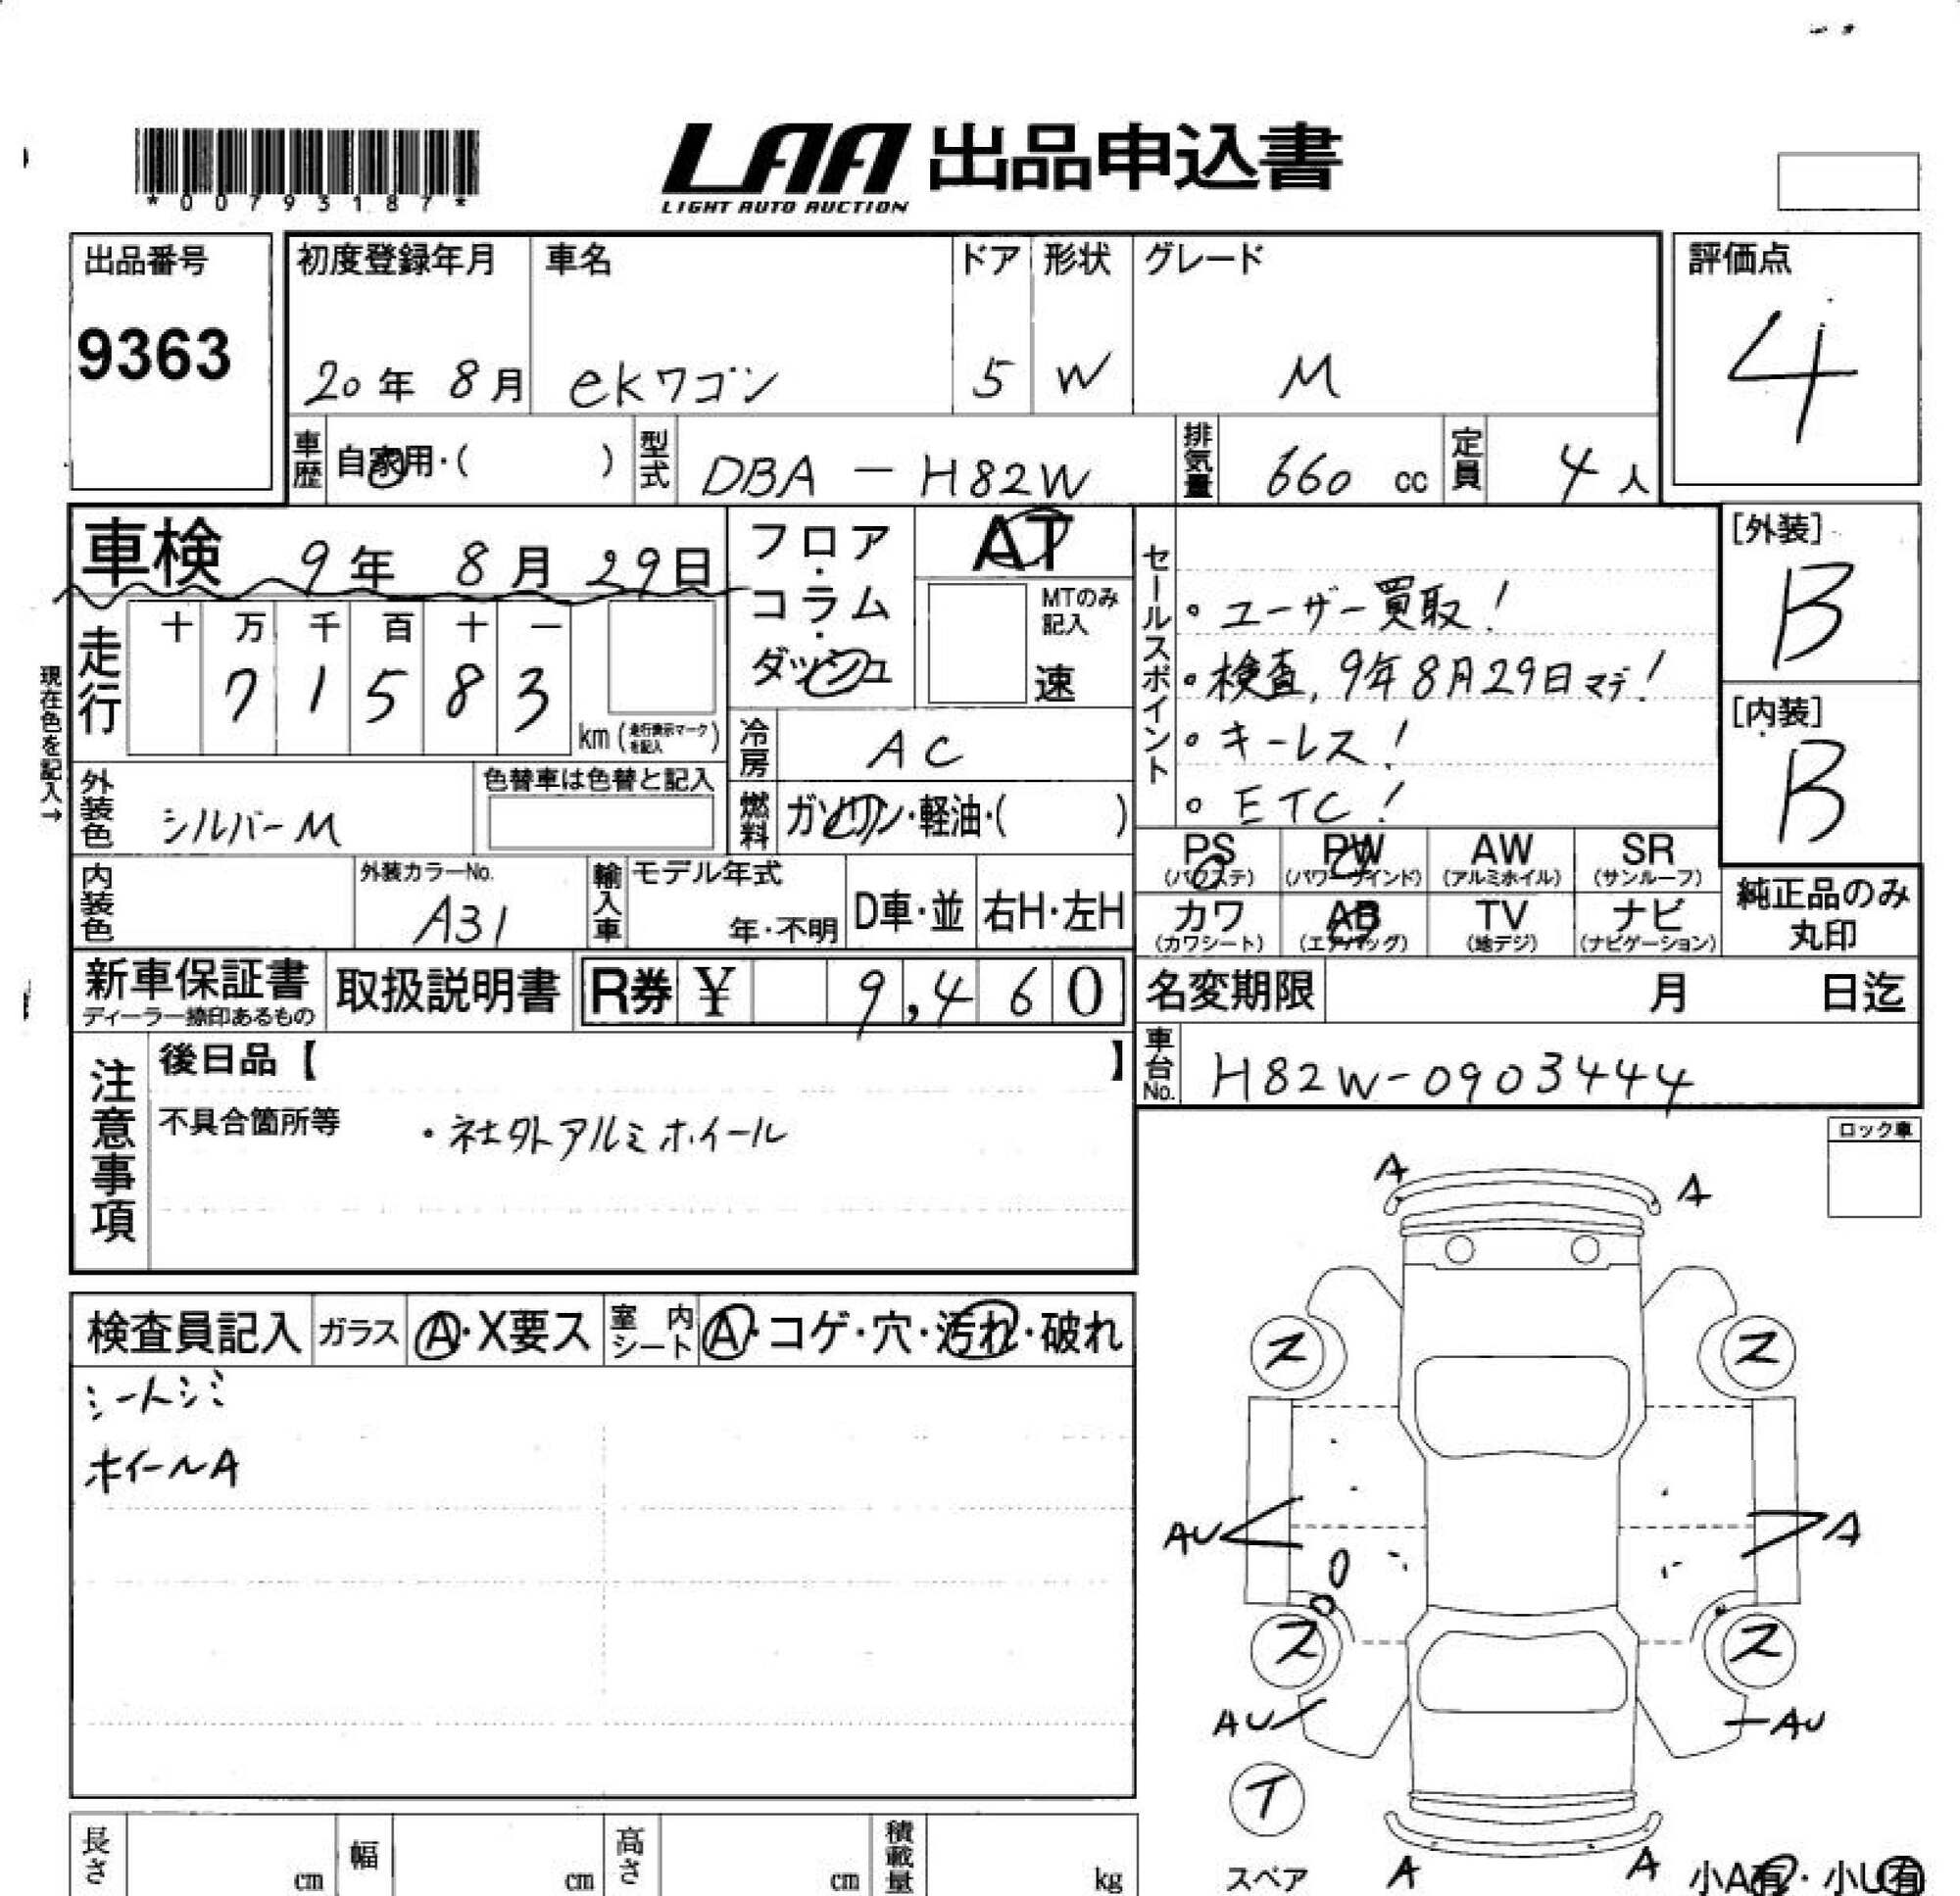 *00793187*
LAA 出品申込書
LIGHT AUTO AUCTION
出品番号
9363
初度登録年月
20年 8月
車名
ekワゴン
ドア
5
形状
W
グレード
M
評価点
4
車歴 自家用・( )
型式 DBA-H82W
排気量 660 cc
定員 4人
車検 9年 8月 29日
フロア・コラム・ダッシュ
AT
MTのみ記入
速
セールスポイント
・ユーザー買取!
・検査, 9年8月29日マデ!
・キーレス!
・ETC!
[外装]
B
[内装]
B
現在色を記入→
走行
十 万 千 百 十 一
7 1 5 8 3
km(走行表示マークを記入)
冷房 AC
燃料 ガソリン・軽油・( )
外装色 シルバーM
色替車は色替と記入
内装色
外装カラーNo.
A31
輸入車
モデル年式
年・不明
D車・並
右H・左H
PS (パワステ)
PW (パワーウインド)
AW (アルミホイル)
SR (サンルーフ)
カワ (カワシート)
AB (エアバッグ)
TV (地デジ)
ナビ (ナビゲーション)
純正品のみ
丸印
新車保証書
ディーラー捺印あるもの
取扱説明書
R券 ¥ 9,460
名変期限 月 日迄
車台No. H82W-0903444
注意事項
後日品【 】
不具合箇所等 ・社外アルミホイール
ロック車
検査員記入
ガラス A・X要ス
室内シート A・コゲ・穴・汚れ・破れ
シートシミ
ホイールA
A
A
ス
ス
AU
A
ス
ス
AU
AU
T
スペア
A
A
小A有・小U有
長さ cm
幅 cm
高さ cm
積載量 kg